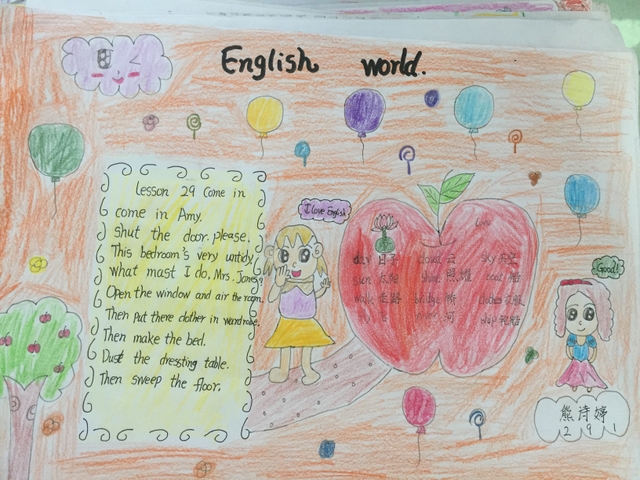 English world.
Lesson 29 Come in
come in Amy.
Shut the door. please.
This bedroom's very untidy
what mast I do, Mrs. Jones
Open the window and air the room.
Then put there clother in wardrobe.
Then make the bed.
Dust the dressting table.
Then sweep the floor.
I love English
day 日子 cloud 云 sky 天空
sun 太阳 shine 照耀 coat 船
walk 走路 bridge 桥 clothes 衣服
飞 河 ship 轮船
Good!
熊诗婷
291